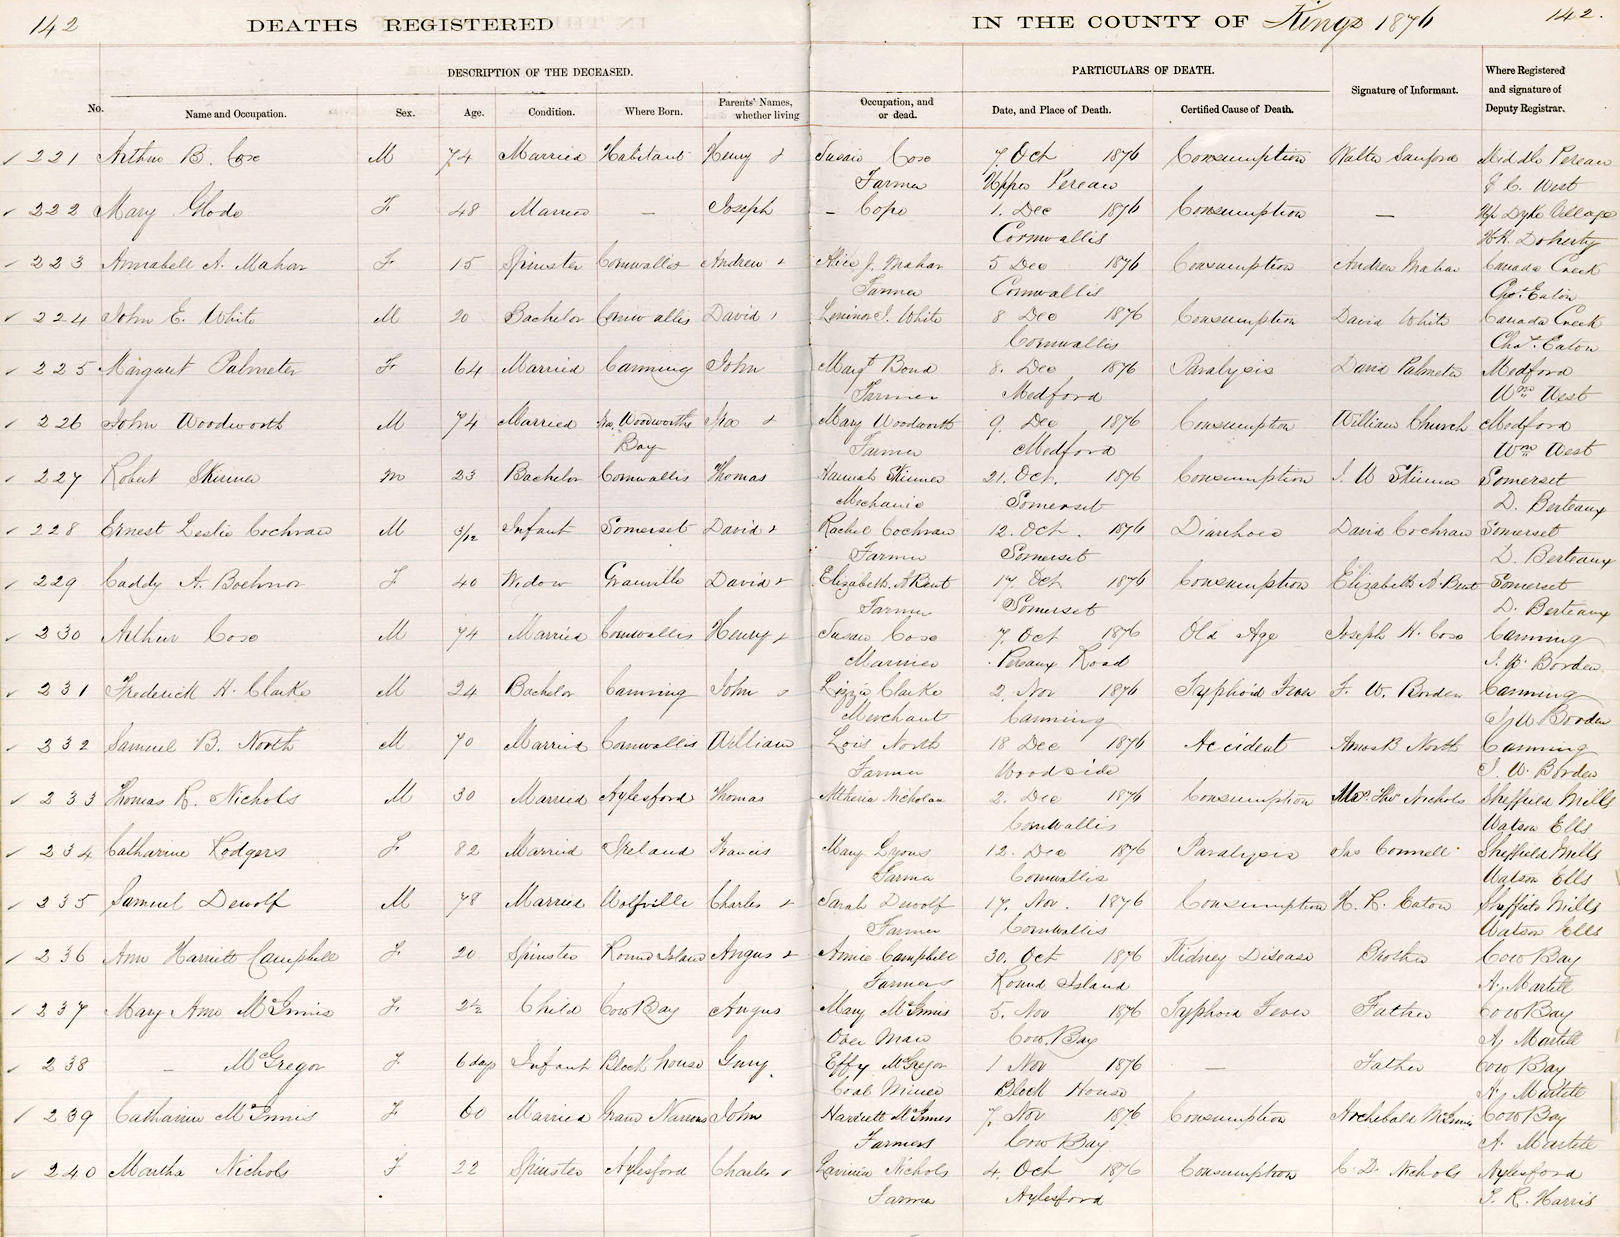 142
DEATHS REGISTERED
IN THE COUNTY OF Kings 1876
142.
DESCRIPTION OF THE DECEASED.
PARTICULARS OF DEATH.
No.
Name and Occupation.
Sex.
Age.
Condition.
Where Born.
Parents' Names, whether living
Occupation, and or dead.
Date, and Place of Death.
Certified Cause of Death.
Signature of Informant.
Where Registered and signature of Deputy Registrar.
221 Arthur B. Coxe M 74 Married Habitant Henry & Susan Coxe 7 Oct 1876 Consumption Walter Sanford Middle Pereau
Farmer Upper Pereau West
222 Mary Glode F 48 Married — Joseph — Cope 1. Dec 1876 Consumption — Up Dyke Village
Cornwallis H.H. Doherty
223 Annabell A. Mahar F 15 Spinster Cornwallis Andrew & Alice J. Mahar 5 Dec 1876 Consumption Andrew Mahar Canada Creek
Farmer Cornwallis Chas. Eaton
224 John E. White M 20 Bachelor Cornwallis David White 8 Dec 1876 Consumption David White Canada Creek
Cornwallis Chas. Eaton
225 Margaret Palmeter F 64 Married Canning John Margt Bond 8. Dec 1876 Paralysis David Palmeter Medford
Farmer Medford Wm West
226 John Woodworth M 74 Married Woodworths Ira & Mary Woodworth 9. Dec 1876 Consumption William Church Medford
Bay Farmer Medford Wm West
227 Robert Skinner M 23 Bachelor Cornwallis Thomas Hannah Skinner 21. Oct. 1876 Consumption W Skinner Somerset
Mechanic Somerset D. Berteaux
228 Ernest Leslie Cochran M 3/12 Infant Somerset David & Rachel Cochran 12. Oct. 1876 Diarrhoea David Cochran Somerset
Farmer Somerset D. Berteaux
229 Caddy A. Boehnor F 40 Widow Granville David & Elizabeth A Bent 17 Oct 1876 Consumption Elizabeth A. Bent Somerset
Farmer Somerset D. Berteaux
230 Arthur Coxe M 74 Married Cornwallis Henry & Susan Coxe 7. Oct 1876 Old Age Joseph H. Coxe Canning
Mariner Pereaux Road Borden
231 Frederick H. Clarke M 24 Bachelor Canning John & Lizzie Clarke 2. Nov 1876 Typhoid Fever F. W. Borden Canning
Merchant Canning W Borden
232 Samuel B. North M 70 Married Cornwallis William Lois North 18 Dec 1876 Accident Amos B North Canning
Farmer Woodside W. Borden
233 Thomas R. Nichols M 30 Married Aylesford Thomas 2. Dec 1876 Consumption Mrs. Thos Nichols Sheffield Mills
Cornwallis Watson Ells
234 Catharine Rodgers F 82 Married Ireland Francis Mary Lyons 12. Dec 1876 Paralysis Jas Connell Sheffield Mills
Farmer Cornwallis Watson Ells
235 Samuel Dewolf M 78 Married Wolfville Charles & Sarah Dewolf 17. Nov. 1876 Consumption H. R. Eaton Sheffield Mills
Farmer Cornwallis Watson Ells
236 Ann Harriett Campbell F 20 Spinster Round Island Angus & Annie Campbell 30. Oct 1876 Kidney Disease Brother Cow Bay
Farmers Round Island A. Martell
237 Mary Ann McInnis F 2½ Child Cow Bay Angus Mary McInnis 5. Nov 1876 Typhoid Fever Father Cow Bay
Over Man Cow. Bay A. Martell
238 — McGregor F 6 days Infant Block House Effy McGregor 1 Nov 1876 — Father Cow Bay
Coal Miner Block House A. Martell
239 Catharine McInnis F 60 Married Grand Narrows John Harriett McInnes 7. Nov 1876 Consumption Archebald McInnis Cow Bay
Farmers Cow Bay A. Martell
240 Martha Nichols F 22 Spinster Aylesford Charles & Lavinia Nichols 4. Oct 1876 Consumption C. D. Nichols Aylesford
Farmer Aylesford R. Harris